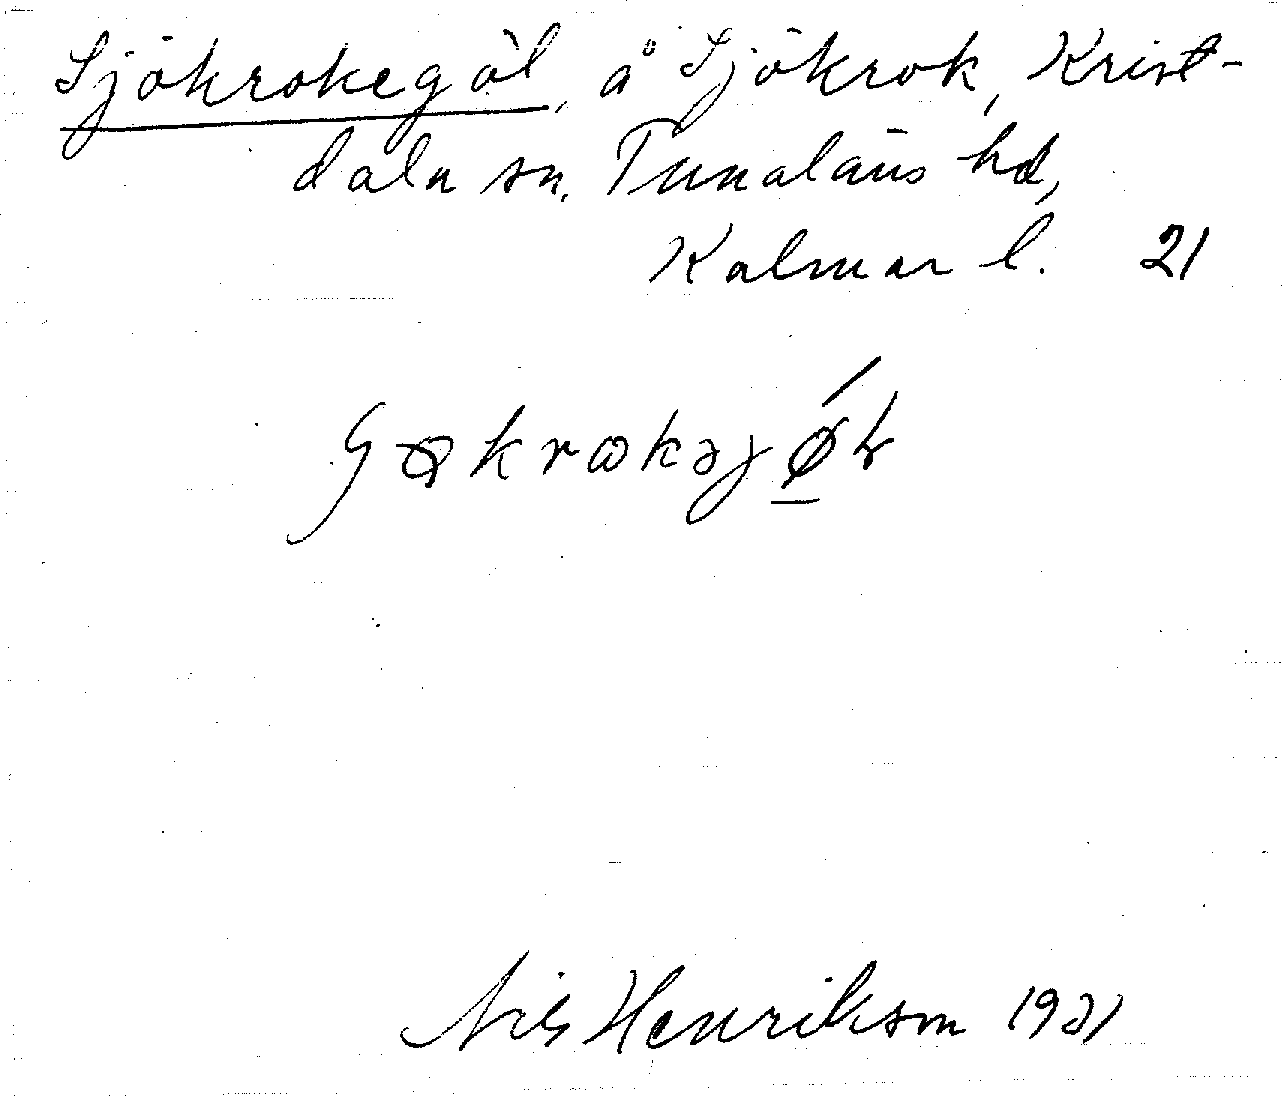 Sjökrokegöl, å Sjökrok, Krist-
dala sn. Tunaläns hd,
Kalmar l. 21
Nils Henrikson 1921